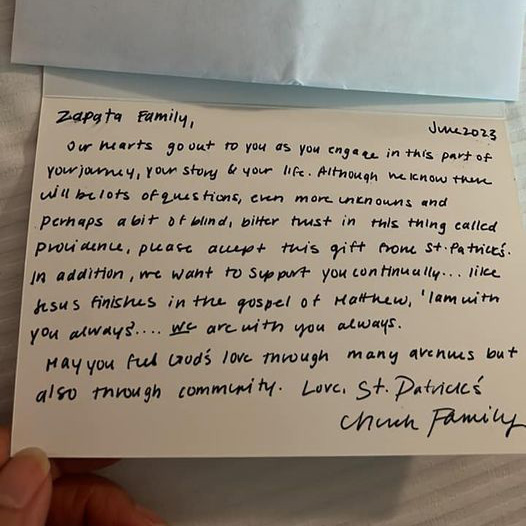 Zapata Family,
June 2023
Our hearts go out to you as you engage in this part of
your journey, your story & your life. Although we know there
will be lots of questions, even more unknowns and
perhaps a bit of blind, bitter trust in this thing called
providence, please accept this gift from St. Patrick's.
In addition, we want to support you continually... like
Jesus finishes in the gospel of Matthew, 'I am with
you always'.... we are with you always.
May you feel God's love through many avenues but
also through community. Love, St. Patrick's
Church Family